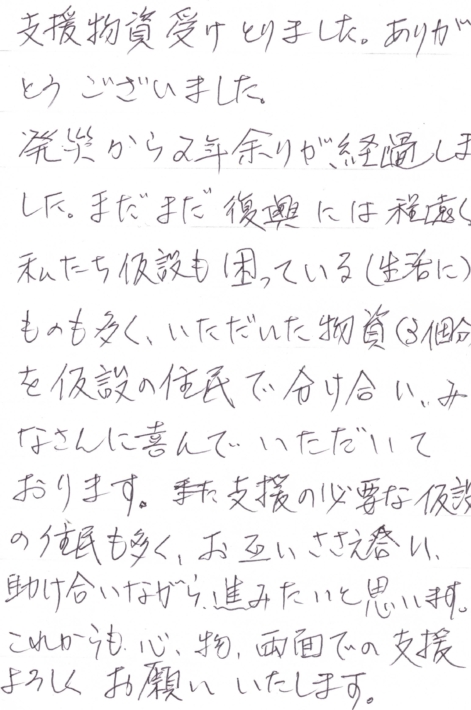 支援物資受けとりました。ありが
とうございました。
発災から2年余りが、経過しま
した。まだまだ復興には程遠く
私たち仮設も困っている(生活に)
ものも多く、いただいた物資(3個分
を仮設の住民で分け合い、み
なさんに喜んでいただいて
おります。また支援の必要な仮設
の住民も多く、お互いささえ合い、
助け合いながら、進みたいと思います。
これからも心、物、両面での支援
よろしくお願いいたします。